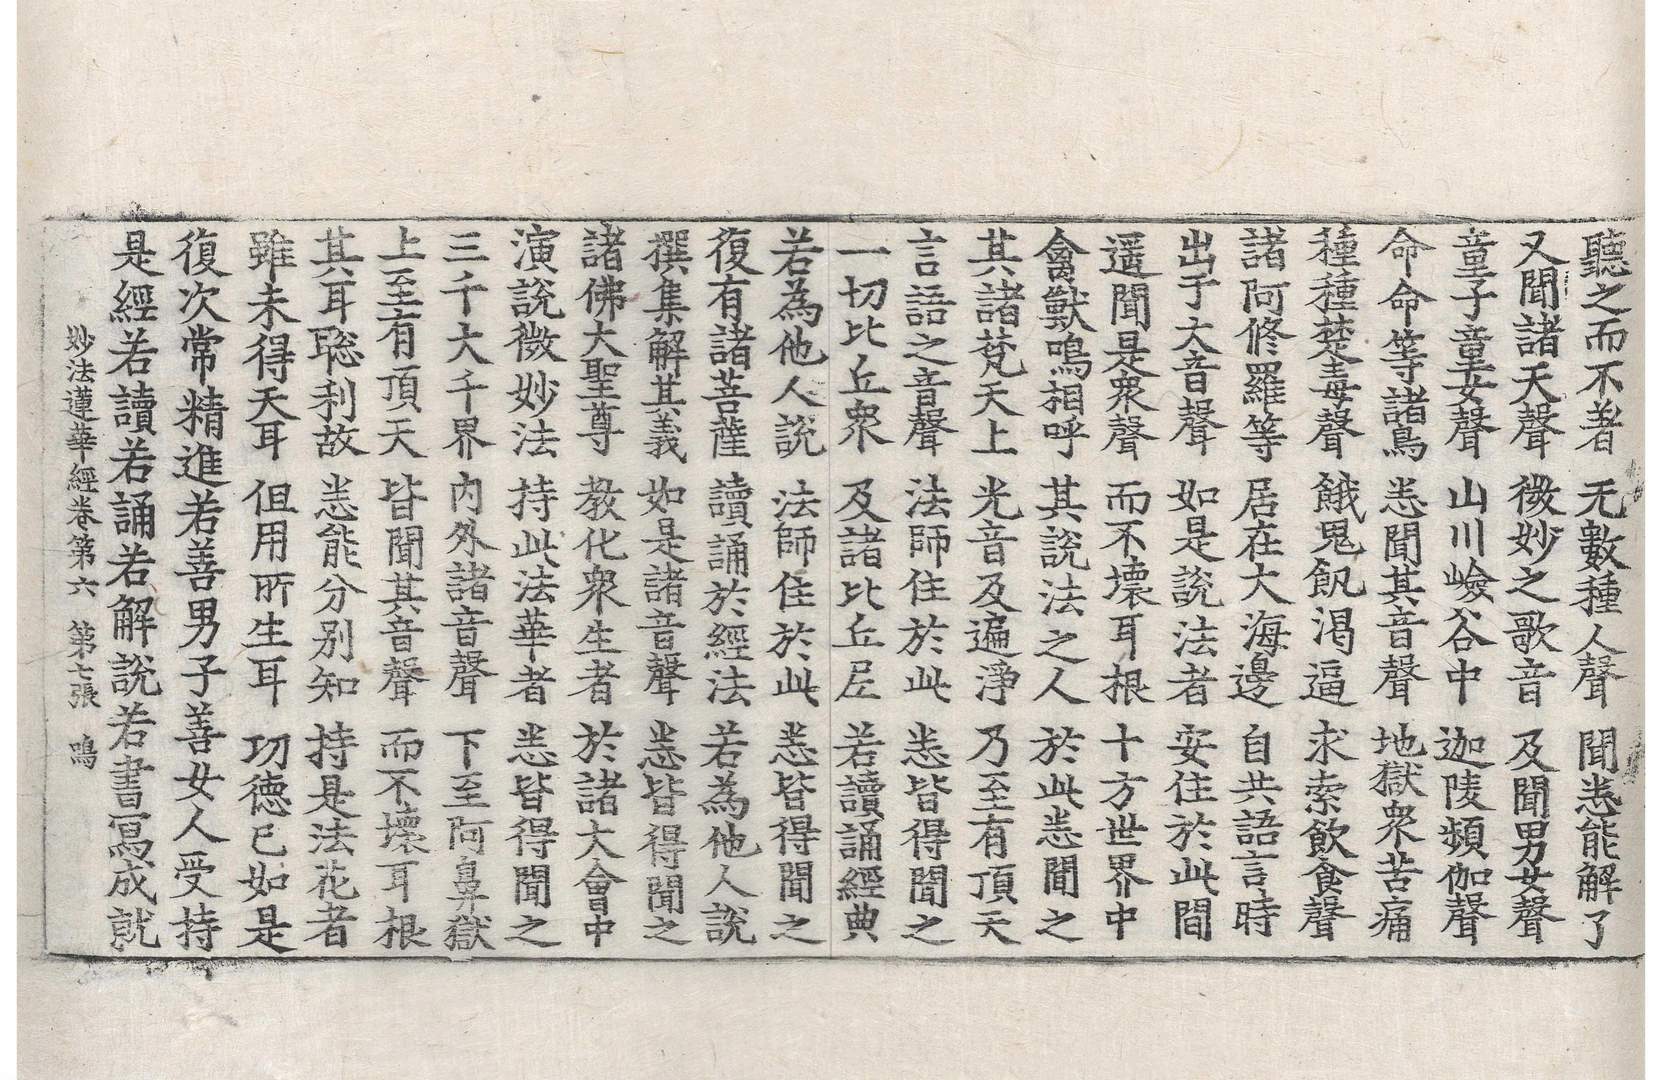 聽之而不著 无數種人聲 聞悉能解了
又聞諸天聲 微妙之歌音 及聞男女聲
童子童女聲 山川嶮谷中 迦陵頻伽聲
命命等諸鳥 悉聞其音聲 地獄衆苦痛
種種楚毒聲 餓鬼飢渴逼 求索飲食聲
諸阿修羅等 居在大海邊 自共語言時
出于大音聲 如是說法者 安住於此間
遥聞是衆聲 而不壞耳根 十方世界中
禽獸鳴相呼 其說法之人 於此悉聞之
其諸梵天上 光音及遍淨 乃至有頂天
言語之音聲 法師住於此 悉皆得聞之
一切比丘衆 及諸比丘尼 若讀誦經典
若為他人說 法師住於此 悉皆得聞之
復有諸菩薩 讀誦於經法 若為他人說
撰集解其義 如是諸音聲 悉皆得聞之
諸佛大聖尊 教化衆生者 於諸大會中
演說微妙法 持此法華者 悉皆得聞之
三千大千界 內外諸音聲 下至阿鼻獄
上至有頂天 皆聞其音聲 而不壞耳根
其耳聡利故 悉能分別知 持是法花者
雖未得天耳 但用所生耳 功德已如是
復次常精進若善男子善女人受持
是經若讀若誦若解說若書寫成就
妙法蓮華經卷第六 第七張 鳴